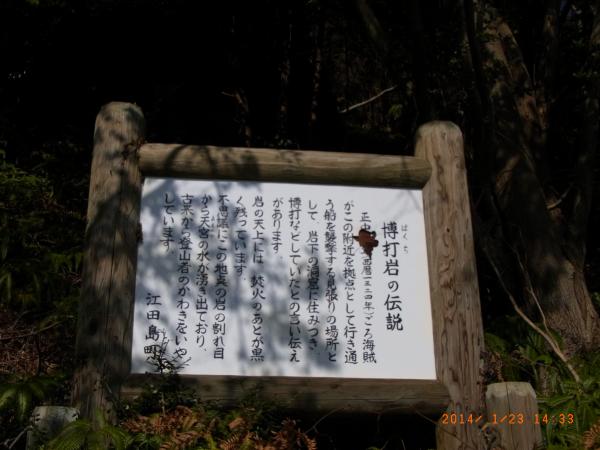 博打岩の伝説
ばくち
正中 西暦一三二四年)ごろ海賊
がこの附近を拠点として行き通
う船を襲撃する見張りの場所と
して、岩下の洞窟に住みつき、
博打などしていたとの言い伝え
があります
岩の天上には 焚火のあとが黒
く残っています。
不思議にこの地質の岩の割れ目
から天宮の水が湧き出ており、
古来から登山者のかわきをいや
しています。
江田島町
2014/ 1/23 14:33